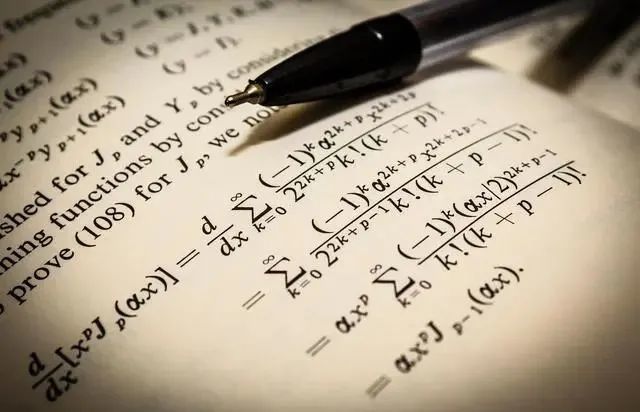 (αx)
y p+1(αx)
αx⁻ᵖy p+1(αx)
ished for J p and Y p by consideri
ning functions by con
prove (108) for J p, we no
d/dx [xᵖJ p(αx)] = d/dx ∑_{k=0}^{∞} (−1)ᵏα²ᵏ⁺ᵖx²ᵏ⁺²ᵖ / 2²ᵏ⁺ᵖk!(k + p)!
= ∑_{k=0}^{∞} (−1)ᵏα²ᵏ⁺ᵖx²ᵏ⁺²ᵖ⁻¹ / 2²ᵏ⁺ᵖ⁻¹k!(k + p − 1)!
= αxᵖ ∑_{k=0}^{∞} (−1)ᵏ(αx|2)²ᵏ⁺ᵖ⁻¹ / k!(k + p − 1)!
= αxᵖJ p−1(αx).